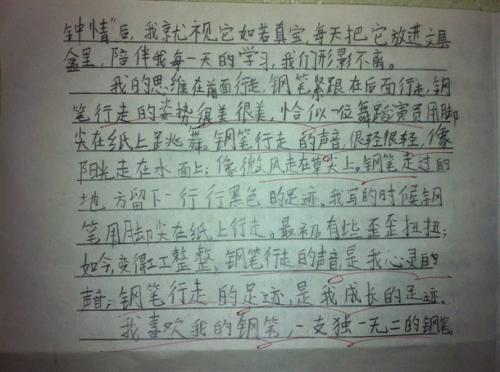 钟情”后，我就视它如若真宝，每天把它放进文具
盒里，陪伴我每一天的学习，我们形影不离。
我的思维在前面行走，钢笔紧跟在后面行走，钢
笔行走的姿势很美很美，恰似一位舞蹈演员用脚
尖在纸上足兆舞。钢笔行走的声音，很轻很轻，像
阳光走在水面上；像微风走在草尖上。钢笔走过的
地方留下一行行黑色的足迹。我写的时候钢
笔用脚尖在纸上行走。最初有些歪歪扭扭；
如今，变得工工整整，钢笔行走的声音是我心灵的
声音；钢笔行走的足迹，是我成长的足迹。
我喜欢我的钢笔，一支独一无二的钢笔。